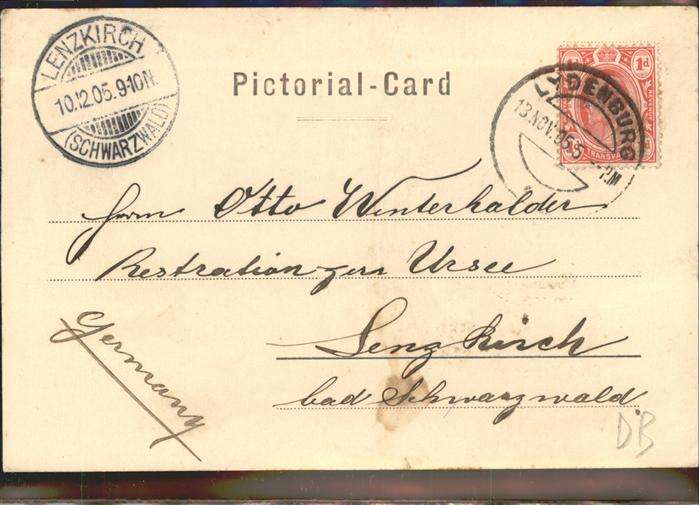 LENZKIRCH
10.12.05.9-10N.
(SCHWARZWALD)
Pictorial-Card
1d
TRANSVAAL
LYDENBURG
13 NOV 05 5 PM
Herrn Otto Winterhalder
Restration zum Ursee
Lenzkirch
bad Schwarzwald
Germany
DB